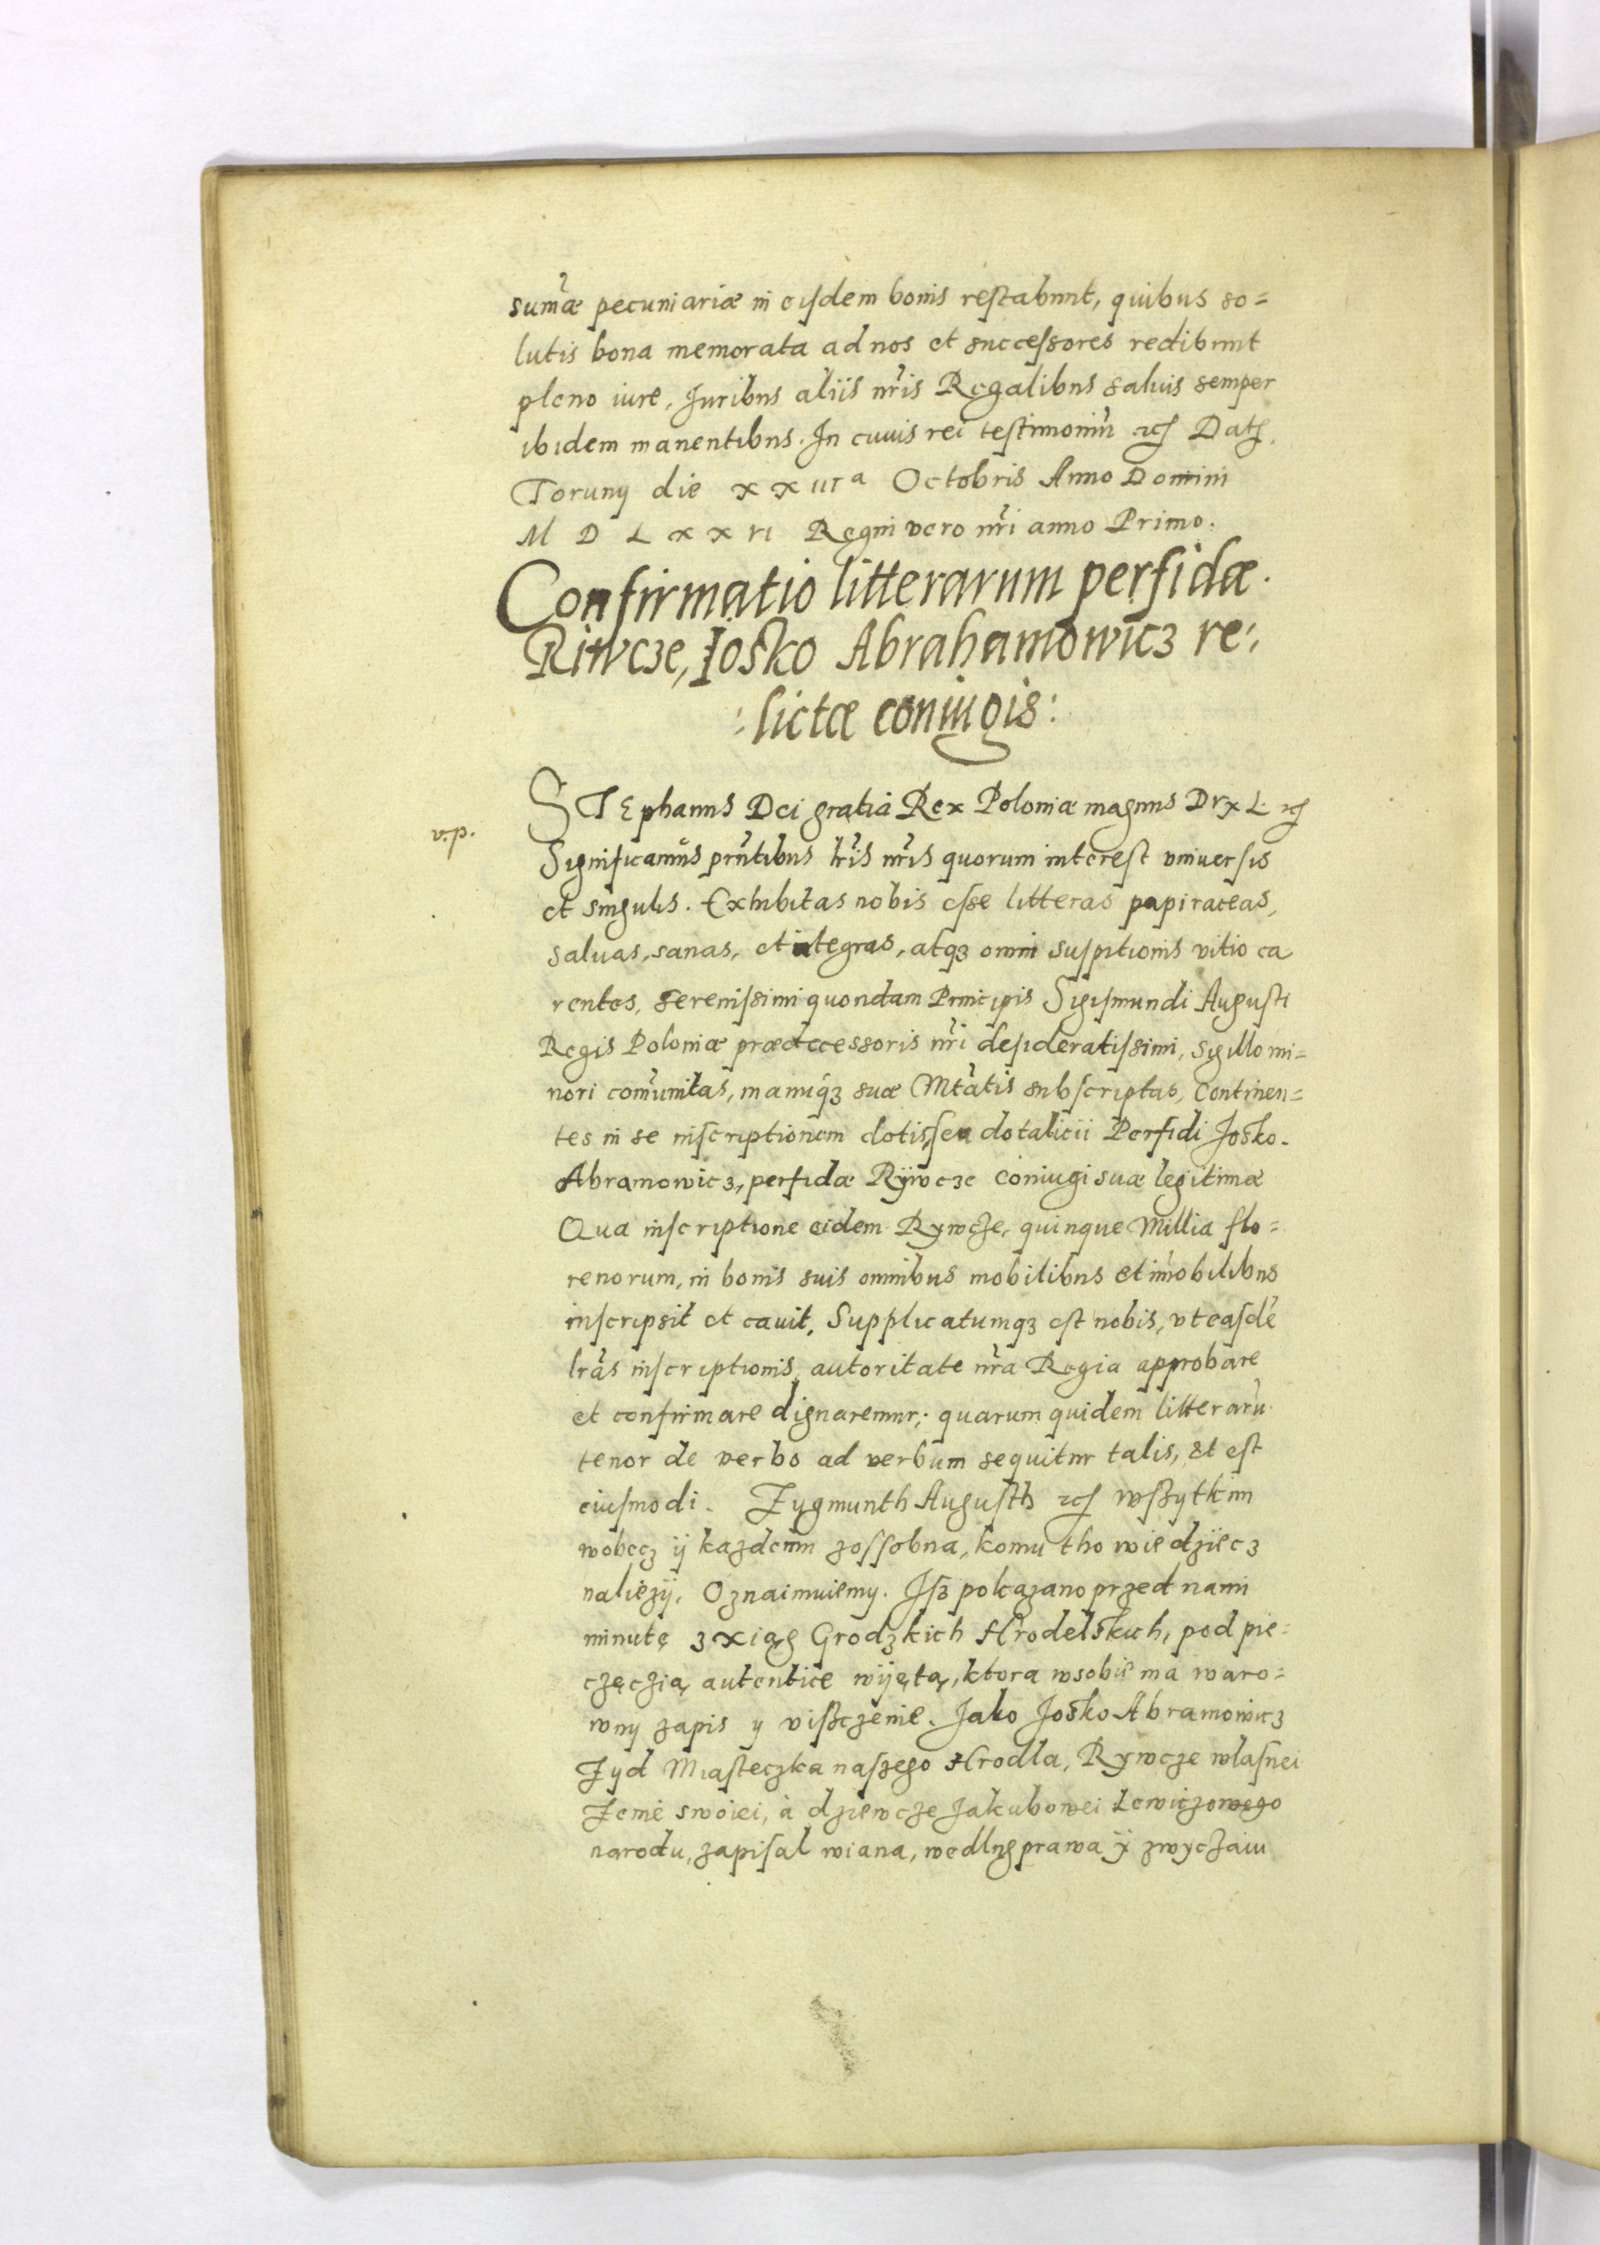 sum̃æ pecuniariæ in eisdem bonis restabunt, quibus so=
lutis bona memorata ad nos et successores redibunt
pleno iure, Juribus aliis nr̃is Regalibus saluis semper
ibidem manentibus. In cuius rei testimoniũ etc Datẽ.
Toruny die xx IIIa Octobris Anno Domini
M D L x x vi Regni vero nr̃i anno Primo.
Confirmatio litterarum perfidæ
Riwcze, Josko Abrahamowicz re:
:lictæ coniugis:
STEphanus Dei gratia Rex Poloniæ magnus Dvx L etc
Significam̃us prñtibus lr̃is nr̃is quorum interest vniversis
et singulis. Exhibitas nobis esse litteras papiraceas,
salvas, sanas, et integras, atqz omni suspitionis vitio ca
rentes, serenissimi quondam Principis Sigismundi Augusti
Regis Poloniæ prædecessoris nr̃i desideratissimi, sigillo mi=
nori com̃unitas, manuqz suæ Mtãtis subscriptas, Continen=
tes in se inscriptionem dotis, seu dotalicii Perfidi Josko
Abramowicz, perfidæ Rÿwcze coniugi suæ legitimæ
Qua inscriptione eidem Rywcze, quinque Millia flo=
renorum, in bonis suis omnibus mobilibus et im̃obilibus
inscripsit et cauit. Supplicatumqz est nobis, vt easdẽ
lrãs inscriptionis, autoritate nr̃a Regia approbare
et confirmare dignaremur; quarum quidem litterarũ
tenor de verbo ad verbum sequitur talis, et est
eiusmodi. Zygmunth Augusth etc wszytkim
wobecz ÿ kazdemu zossobna, komu tho wiedziecz
naliezÿ, Oznaimuiemy. Jsz pokazano przed nami
minutę z xiąg Grodzkich Hrodelskich, pod pie=
częczią autentice wÿjętą, ktora wsobie ma waro=
wny zapis y visczenie. Jako Josko Abramowicz
Zyd Miasteczka naszego Hrodla, Rywcze wlasnei
Zenie swoiei, à dziewcze Jakubowei Lewiczowego
narodu, zapisal wiana, wedlug prawa ÿ zwyczaiu